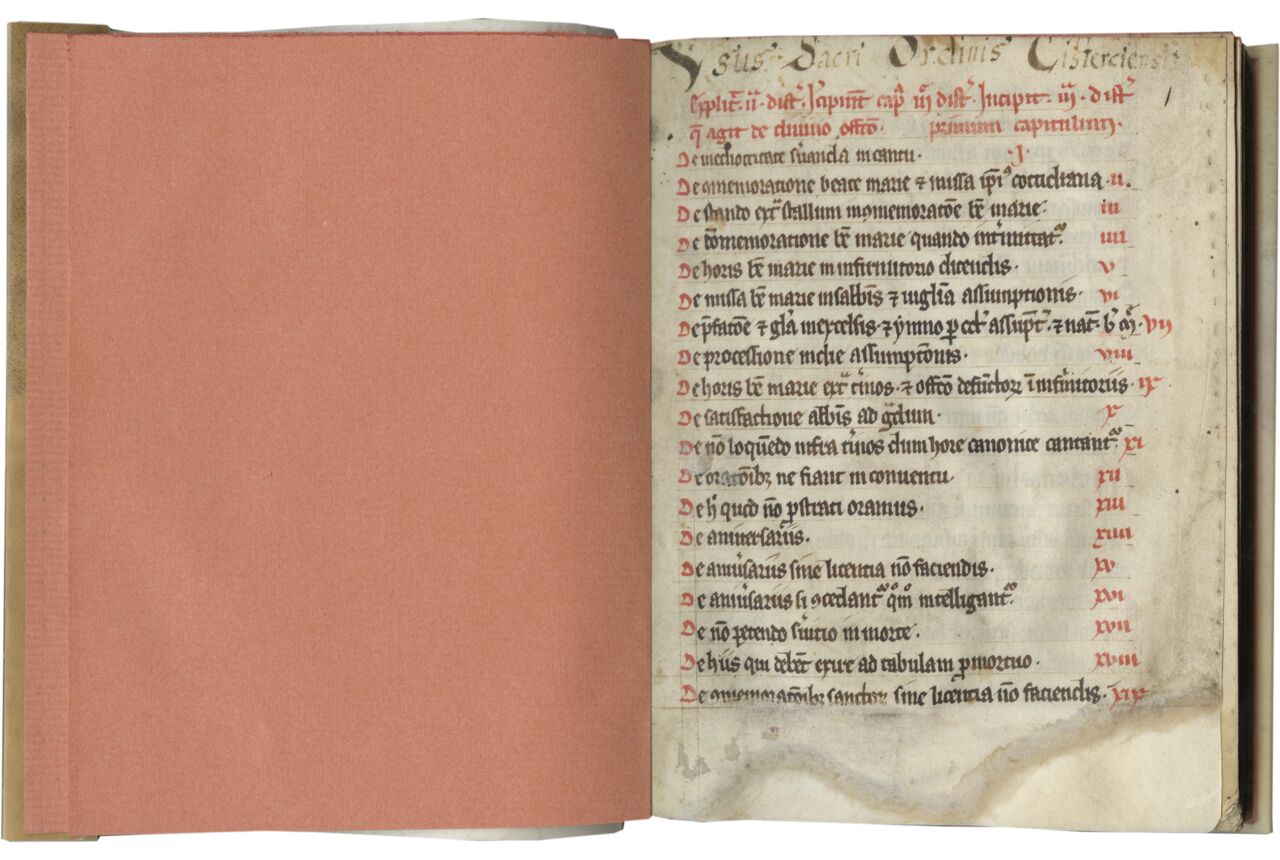 Usus Sacri Ordinis Cisterciensis
Explic̄ . ii . dist̄ . Incipiūt cap̄ . iij dist̄ . Incipit . iij . dist̄
q̄ agit de diuino offō . primum capitulum .
De mediocritate s̄uanda in cantu . I .
De ꝯmemoratione beate marie ⁊ missa ip̄iꝰ cottidiana . ii .
De stando ext̄ stallum in ꝯmemoratōe bē marie . iii
De ꝯmemoratione bē marie quando int̄mittat᷑ . iiii
De horis bē marie in infirmitorio dicendis . v
De missa bē marie in sabb̄is ⁊ in uigl̄ia assumptionis . vi
De p̄fatōe ⁊ gl̄a in excelsis . ⁊ ẏmno ꝑ oct̄ assūpt̄ . ⁊ nat̄ . b̄ m̄ . vii
De processione in die assumptōnis . viii
De horis bē marie ext̄ t̄minos . ⁊ offō defūctoꝝ ī infirmitoriis . ix
De satisfactione abb̄is ad gͣdum . x
De nō loquēdo infra t̄minos dum hore canonice cantant᷑ . xi
De oratōibꝫ ne fiant in conuentu . xii
De h̄ quod nō ꝓstrati oramus . xiii
De aniuersariis . xiiii
De aniūsariis sine licentia nō faciendis . xv
De aniūsariis si ꝯcedant᷑ qͦm̊ intelligant᷑ . xvi
De nō petendo s̄uitio in morte . xvii
De hiis qui debēt exire ad tabulam ꝓ mortuo . xviii
De ꝯmemoratōibꝫ sanctoꝝ sine licētia nō faciendis . xix